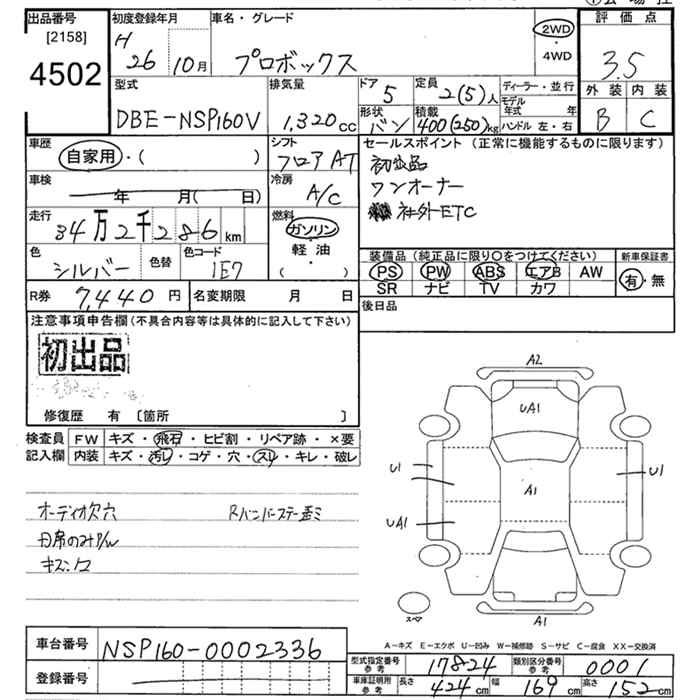 出品番号
[2158]
4502
初度登録年月
H
26 10月
車名・グレード
プロボックス
2WD
・
4WD
評価点
3.5
外装 内装
B C
型式
DBE-NSP160V
排気量
1,320cc
ドア
5
形状
バン
定員
2(5)人
積載
400(250)kg
ディーラー・並行
モデル
年式 年
ハンドル 左・右
車歴
自家用・( )
シフト
フロアAT
セールスポイント (正常に機能するものに限ります)
初出品
ワンオーナー
社外ETC
車検
年 月( 日)
冷房
A/C
走行
34万2千286km
燃料
ガソリン
軽油
( )
色
シルバー
色替
色コード
1E7
装備品 (純正品に限り○をつけてください)
PS PW ABS エアB AW
SR ナビ TV カワ
新車保証書
有・無
R券 7,440円
名変期限 月 日
後日品
注意事項申告欄(不具合内容等は具体的に記入して下さい)
初出品
修復歴 有 〔箇所 〕
検査員
記入欄
FW キズ・飛石・ヒビ割・リペア跡・×要
内装 キズ・汚レ・コゲ・穴・スレ・キレ・破レ
オーディオ欠穴
キズ凹コ
A2
UA1
U1
A1
U1
UA1
A1
スペア
A-キズ E-エクボ U-凹み W-補修跡 S-サビ C-腐食 XX-交換済
車台番号 NSP160-0002336
登録番号
型式指定番号
参考
17824
類別区分番号
参考
0001
車庫証明用
参考
長さ 424cm 幅 169cm 高さ 152cm